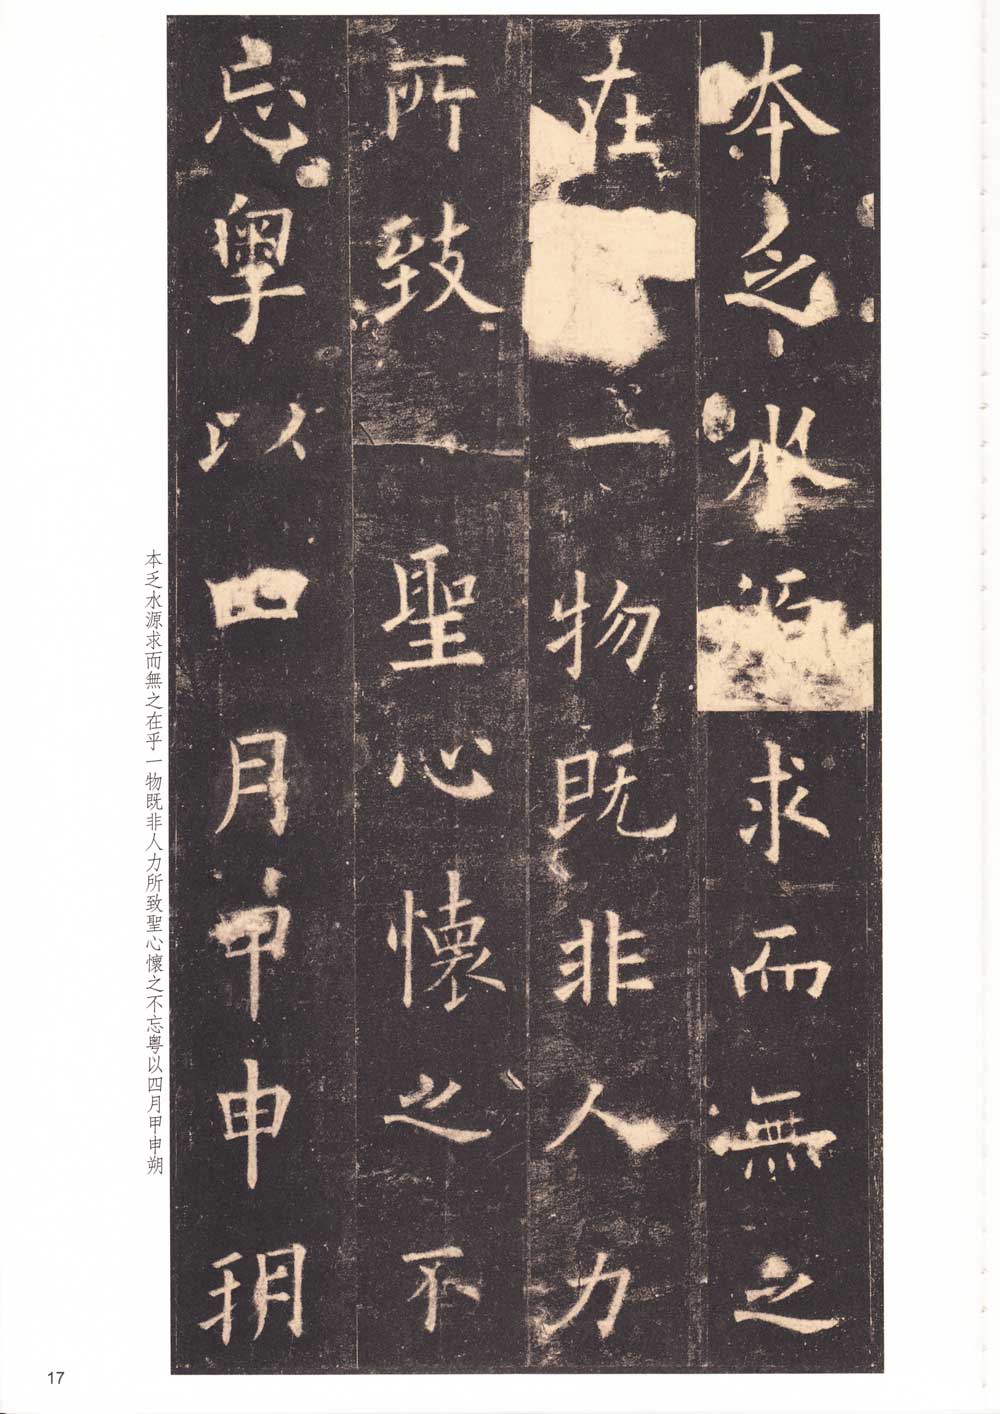 本乏水源求而無之
在一物既非人力
所致聖心懷之不
忘粵以四月甲申朔
本乏水源求而無之在乎一物既非人力所致聖心懷之不忘粵以四月甲申朔
17